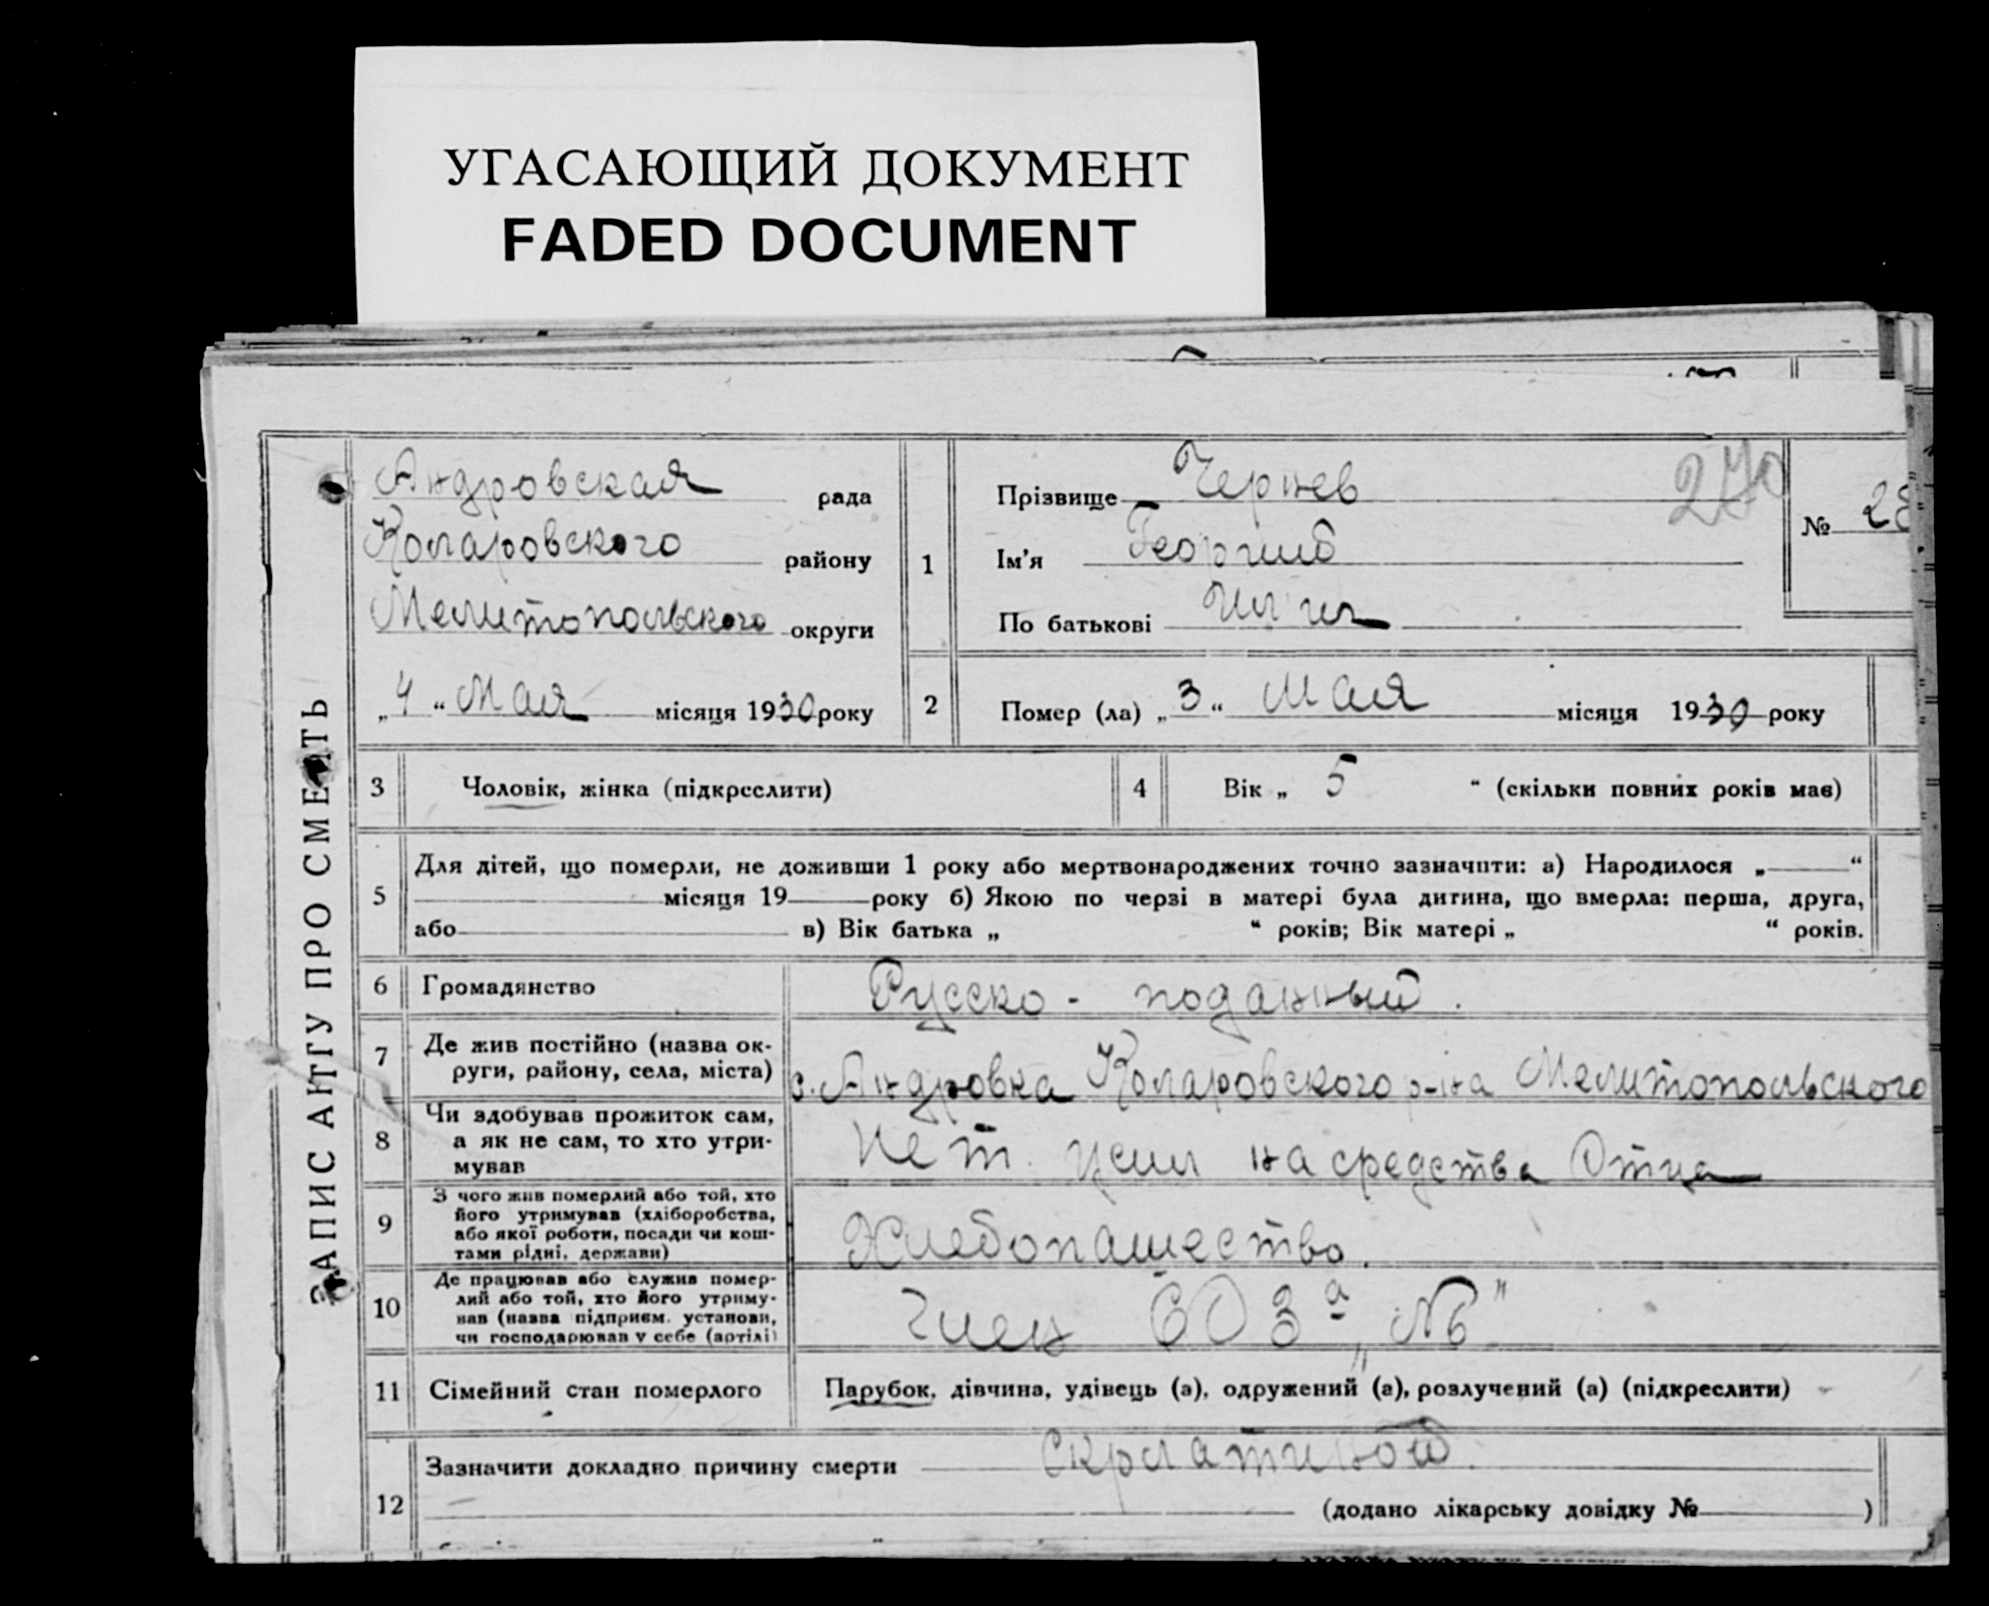 УГАСАЮЩИЙ ДОКУМЕНТ
FADED DOCUMENT
ЗАПИС АКТУ ПРО СМЕРТЬ
Андровская рада
Коларовского району
Мелитопольского округи
„4“ Мая місяця 1930 року
1
Прізвище Чернев
Ім'я Георгий
По батькові
270
№ 28
2 Помер (ла) „3“ Мая місяця 1930 року
3 Чоловік, жінка (підкреслити)
4 Вік „ 5 “ (скільки повних років має)
5 Для дітей, що померли, не доживши 1 року або мертвонароджених точно зазначити: а) Народилося „ “
місяця 19 року б) Якою по черзі в матері була дитина, що вмерла: перша, друга,
або в) Вік батька „ “ років; Вік матері „ “ років.
6 Громадянство Русско - поданный.
7 Де жив постійно (назва округи, району, села, міста) с. Андровка Коларовского р-на Мелитопольского
8 Чи здобував прожиток сам,
а як не сам, то хто утри-
мував
Нет. на средства Отца
9 З чого жив померлий або той, хто
його утримував (хліборобства,
або якої роботи, посади чи кош-
тами рідні, держави)
Хлебопашество.
10 Де працював або служив помер-
лий або той, хто його утриму-
вав (назва підприєм. установи,
чи господарював у себе (артілі)
Член СОЗа
11 Сімейний стан померлого Парубок, дівчина, удівець (а), одружений (а), розлучений (а) (підкреслити)
12 Зазначити докладно причину смерти Скрлатиной.
(додано лікарську довідку № )